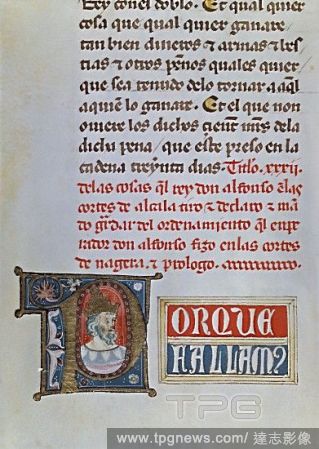 rrey con el doblo. Et qual quier
cosa que qual quier ganare
tan bien dineros & armas & bes
tias & otros pennos quales quier
que sea tenudo delo tornar a aql
aquien lo ganare. Et el que non
ouiere los dichos cient mrs dela
dicha pena / que este preso en la
cadena treynta dias. Titlo. xxxij.
delas cosas ql rey don alfonso enlas
cortes de alcala tiro & declaro & man
do gardar del ordenamiento ql enpe
rador don alfonso fizo en las cortes
de nagera. & prologo.
PORQUE
HALLAM?
TPG
www.tpgnews.com/ 達志影像